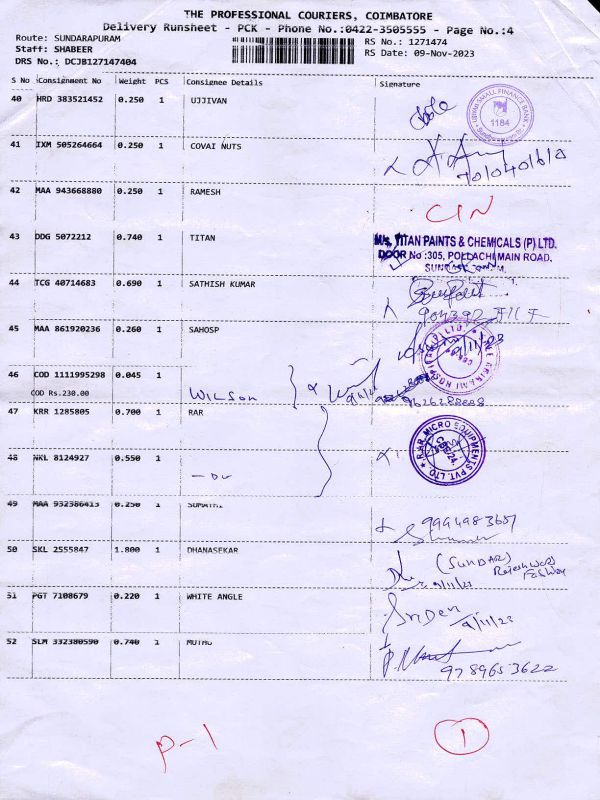 THE PROFESSIONAL COURIERS, COIMBATORE
Delivery Runsheet - PCK - Phone No.:0422-3505555 - Page No.:4
Route: SUNDARAPURAM RS No.: 1271474
Staff: SHABEER RS Date: 09-Nov-2023
DRS No.: DCJB127147404
S No Consignment No Weight PCS Consignee Details Signature
40 HRD 383521452 0.250 1 UJJIVAN
UJJIVAN SMALL FINANCE BANK
1184
41 IXM 505264664 0.250 1 COVAI NUTS
42 MAA 943668880 0.250 1 RAMESH
CIN
43 DDG 5072212 0.740 1 TITAN
M/s. TITAN PAINTS & CHEMICALS (P) LTD.
DOOR No :305, POLLACHI MAIN ROAD.
44 TCG 40714683 0.690 1 SATHISH KUMAR
45 MAA 861920236 0.260 1 SAHOSP
9/11/23
46 COD 1111995298 0.045 1
COD Rs.230.00 WILSON
9626288888
47 KRR 1285805 0.700 1 RAR
RAR MICRO EQUIPMENTS PVT. LTD.
48 NKL 8124927 0.550 1
49 MAA 932386413 0.250 1 SUMATHI
9994983657
50 SKL 2555847 1.800 1 DHANASEKAR
(SUNDAR)
9/11/23
51 PGT 7108679 0.220 1 WHITE ANGLE
9/11/23
52 SLM 332380590 0.740 1 MUTHU
9789653622
P-1 1